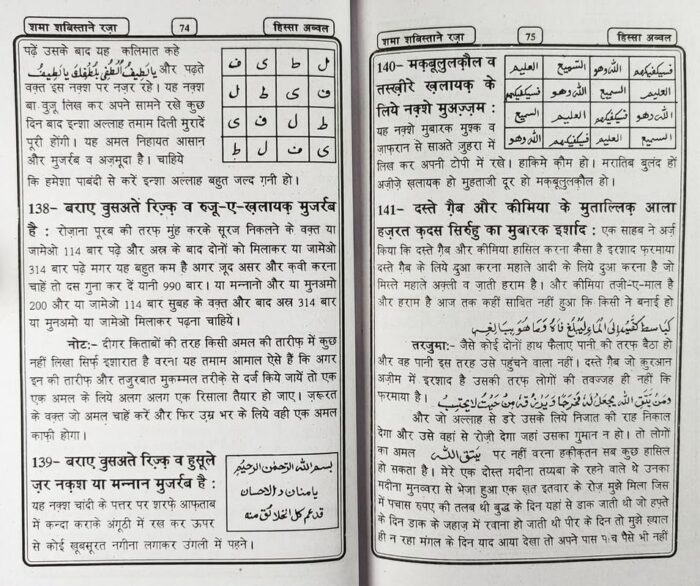 शमा शबिस्ताने रज़ा 74 हिस्सा अव्वल
पढ़ें उसके बाद यह कलिमात कहे
یالطیف الطفی بلطفك یالطیف और पढ़ते
वक़्त इस नक़्श पर नज़र रहे। यह नक़्श
बा वुज़ू लिख कर अपने सामने रखे कुछ
दिन बाद इन्शा अल्लाह तमाम दिली मुरादें
पूरी होंगी। यह अमल निहायत आसान
और मुजर्रब व अज़मूदा है। चाहिये
ل ط ی ف
ف ی ط ل
ط ل ف ی
ی ف ل ط
कि हमेशा पाबंदी से करें इन्शा अल्लाह बहुत जल्द ग़नी हो।
138- बराए वुसअते रिज़्क़ व रुजू-ए-ख़लायक़ मुजर्रब
है : रोज़ाना पूरब की तरफ़ मुंह करके सूरज निकलने के वक़्त या
जामेओ 114 बार पढ़े और अस्र के बाद दोनों को मिलाकर या जामेओ
314 बार पढ़े मगर यह बहुत कम है अगर ज़ूद असर और क़वी करना
चाहें तो दस गुना कर दें यानी 990 बार। या मन्नानो और या मुनअमो
200 और या जामेओ 114 सुबह के वक़्त और बाद अस्र 314 बार
या मुनअमो या जामेओ मिलाकर पढ़ना चाहिये।
नोट:- दीगर किताबों की तरह किसी अमल की तारीफ़ में कुछ
नहीं लिखा सिर्फ़ इशारात है वरना यह तमाम आमाल ऐसे हैं कि अगर
इन की तारीफ़ और तजुरबात मुकम्मल तरीक़े से दर्ज किये जायें तो एक
एक अमल के लिये अलग अलग एक रिसाला तैयार हो जाए। ज़रूरत
के वक़्त जो अमल चाहें करें और फिर उम्र भर के लिये वही एक अमल
काफ़ी होगा।
139- बराए वुसअते रिज़्क़ व हुसूले
ज़र नक़्श या मन्नान मुजर्रब है :
यह नक़्श चांदी के पत्तर पर शरफ़े आफ़ताब
में कन्दा कराके अंगूठी में रख कर ऊपर
بسم الله الرحمن الرحیم
یامنان ذالاحسان
قد عم کل الخلائق منه
से कोई खूबसूरत नगीना लगाकर उंगली में पहने।
शमा शबिस्ताने रज़ा 75 हिस्सा अव्वल
140- मक़बूलुलक़ौल व
तस्ख़ीरे ख़लायक़ के
लिये नक़्शे मुअज़्ज़म :
यह नक़्शे मुबारक मुश्क व
ज़ाफ़रान से साअते ज़ुहरा में
فسیکفیکهم الله وهو السمیع العلیم
العلیم السمیع الله وهو فسیکفیکهم
الله وهو فسیکفیکهم العلیم السمیع
السمیع العلیم فسیکفیکهم الله وهو
लिख कर अपनी टोपी में रखे। हाकिमे क़ौम हो। मरातिब बुलंद हों
अज़ीज़े ख़लायक़ हो मुहताजी दूर हो मक़बूलुलक़ौल हो।
141- दस्ते ग़ैब और कीमिया के मुताल्लिक़ आला
हज़रत क़दस सिर्रहु का मुबारक इर्शाद : एक साहब ने अर्ज़
किया कि दस्ते ग़ैब और कीमिया हासिल करना कैसा है इरशाद फ़रमाया
दस्ते ग़ैब के लिये दुआ करना महाले आदी के लिये दुआ करना है जो
मिस्ले महाले अक़्ली व ज़ाती हराम है। और कीमिया तज़ी-ए-माल है
और हराम है आज तक कहीं साबित नहीं हुआ कि किसी ने बनाई हो
کباسط کفیه الی الماء لیبلغ فاه وما هو ببالغه
तरजुमा:- जैसे कोई दोनों हाथ फैलाए पानी की तरफ़ बैठा हो
और वह पानी इस तरह उसे पहुंचने वाला नहीं। दस्ते ग़ैब जो क़ुरआन
अज़ीम में इरशाद है उसकी तरफ़ लोगों की तवज्जह ही नहीं कि
फ़रमाया है। ومن یتق الله یجعل له مخرجا ویرزقه من حیث لا یحتسب
और जो अल्लाह से डरे उसके लिये निजात की राह निकाल
देगा और उसे वहां से रोज़ी देगा जहां उसका गुमान न हो। तो लोगों
का अमल یتق الله पर नहीं वरना हक़ीक़तन सब कुछ हासिल
हो सकता है। मेरे एक दोस्त मदीना तय्यबा के रहने वाले थे उनका
मदीना मुनव्वरा से भेजा हुआ एक ख़त इतवार के रोज़ मुझे मिला जिस
में पचास रुपए की तलब थी बुद्ध के दिन यहां से डाक जाती थी जो हफ़्ते
के दिन डाक के जहाज़ में रवाना हो जाती थी पीर के दिन तो मुझे ख़्याल
ही न रहा मंगल के दिन याद आया देखा तो अपने पास पांच पैसे भी नहीं